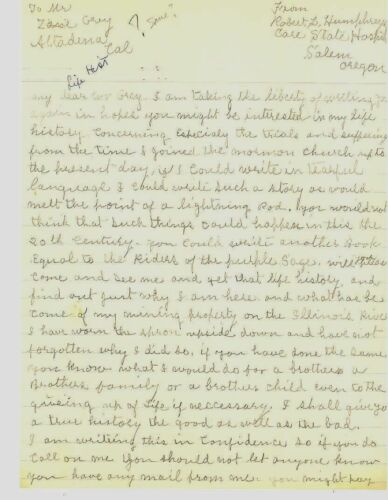 To Mr
Zane Grey
Altadena
Cal
? Gone?
From
Robert L. Humphrey
Care State Hospi
Salem
Oregon
Life Hist
my dear Mr Grey. I am taking the liberty of writing
again in hopes you might be interested in my life
history concerning especially the trials and suffering
from the time I joined the mormon church up to
the present day, if I could write in tearful
language I could write such a story as would
melt the point of a lightning Rod. you would not
think that such things could happen in this the
20th Century. you could write another Book
Equal to the Riders of the purple Sage. will you
come and see me and get that life history. and
find out just why I am here and what has be
come of my mining property on the Illinois River
I have worn the apron upside down and have not
forgotten why I did so, if you have done the same
you know what I would do for a brother a
Brothers family or a brother child even to the
giveing up of life if neccessary. I shall give you
a true history the good as well as the bad.
I am writing this in Confidence so if you do
call on me you should not let anyone know
you have any mail from me. you might say